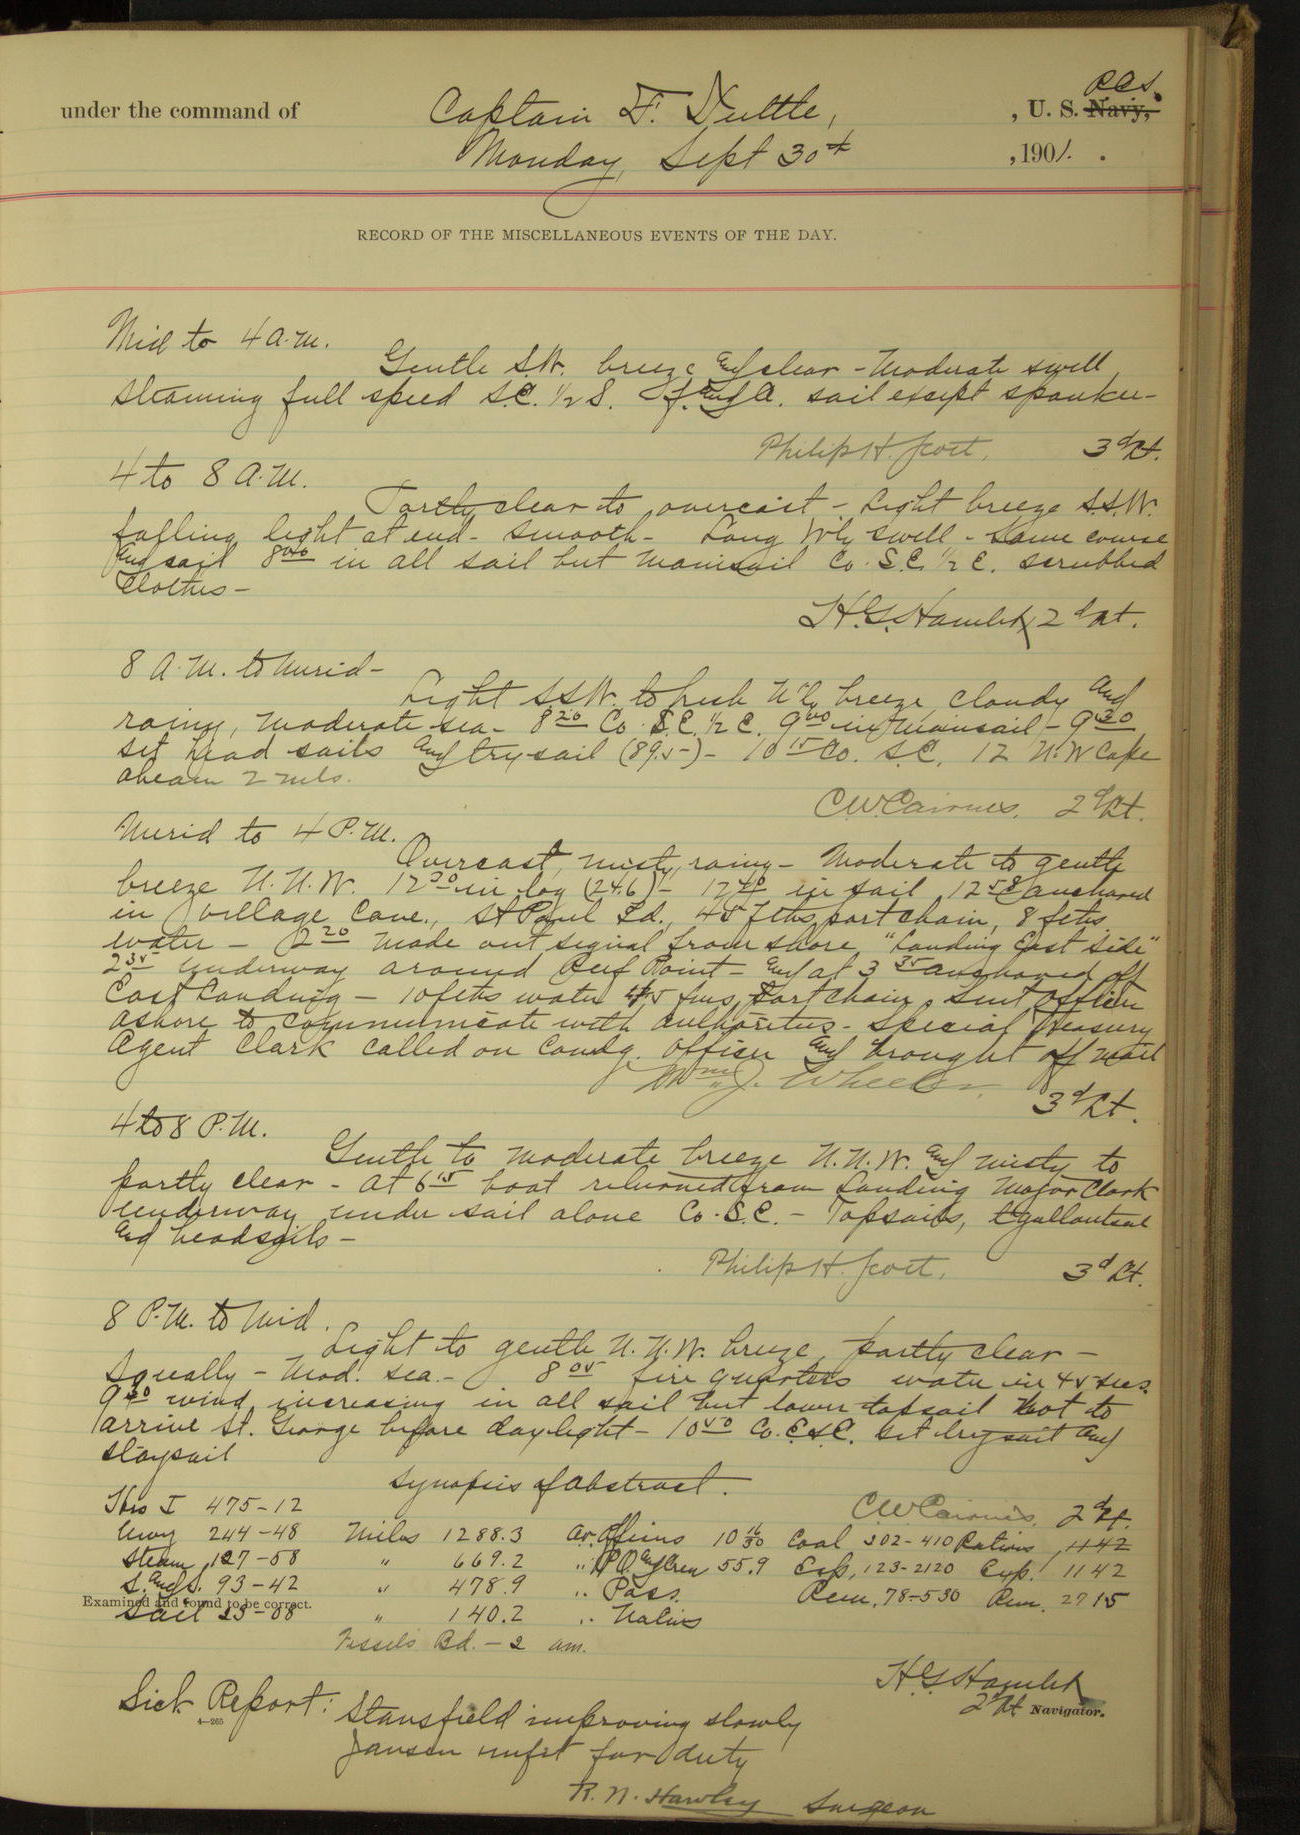 under the command of Captain F. Tuttle, , U. S. Navy, R.C.S.
Monday, Sept 30th , 1901.
RECORD OF THE MISCELLANEOUS EVENTS OF THE DAY.
Mid to 4 A.M.
Gentle S.W. breeze and clear - Moderate swell
steaming full speed S.E. 1/2 S. F. and A. sail except spanker -
Philip H. Scott, 3d Lt.
4 to 8 A.M.
Partly clear to overcast - Light breeze S.S.W.
falling light at end - smooth - Long W'ly swell - Same course
and sail 8 00 in all sail but mainsail Co. S.E. 1/2 E. scrubbed
clothes -
H.G. Hamlet, 2d Lt.
8 A.M. to Merid -
Light S.S.W. to fresh N'ly breeze, cloudy and
rainy, moderate sea - 8 20 Co. S.E. 1/2 E. 9 00 in mainsail - 9 30
set head sails and trysail (89.5) - 10 15 Co. S.E. 12 N.W Cape
abeam 2 mls.
C.W. Cairnes. 2d Lt.
Merid to 4 P.M.
Overcast, misty, rainy - Moderate to gentle
breeze N.N.W. 12 30 in log (24.6) - 12 40 in sail, 12 58 anchored
in Village Cove, St Paul Id., 45 fths port chain, 8 fths
water - 2 20 made out signal from shore "Landing East Side"
2 35 underway around Reef Point - and at 3 35 anchored off
East Landing - 10 fths water 45 fms port chain, Sent Officer
ashore to communicate with authorities - Special Treasury
Agent Clark called on Comdg. Officer and brought off mail
Wm J. Wheeler
3d Lt.
4 to 8 P.M.
Gentle to moderate breeze N.N.W. and misty to
partly clear - At 6 15 boat returned from landing Major Clark
Underway under sail alone Co. S.E. - Topsails, t'gallantsail
and headsails -
Philip H. Scott, 3d Lt.
8 P.M. to Mid.
Light to gentle N.N.W. breeze, partly clear -
squally - Mod. sea - 8 05 fire quarters water in 45 secs.
9 30 wind increasing in all sail but lower topsail not to
arrive St. George before daylight - 10 50 Co. E.S.E. Set trysail and
staysail
Synopsis of abstract.
C.W. Cairnes. 2d Lt.
475-12
Unwy 244-48 Miles 1288.3 Av. Officers 10 Coal 202-410 Rations 1142
Steam 127-58 " 669.2 " P.O. and Crew 55.9 Exp. 123-2120 Exp. 1142
S. and S. 93-42 " 478.9 " Pass. Rem. 78-530 Rem. 2715
Examined and found to be correct.
Sail 23-08 " 140.2 " Natives
Vessels Bd. - 2 am.
H.G. Hamlet
2d Lt Navigator.
Sick Report: Stansfield improving slowly
4-265
Jansen unfit for duty
R. N. Hawley Surgeon